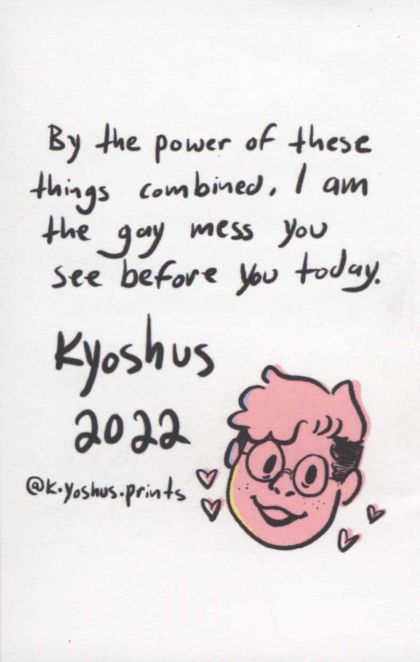 By the power of these
things combined, I am
the gay mess you
see before you today.
Kyoshus
2022
@k.yoshus.prints